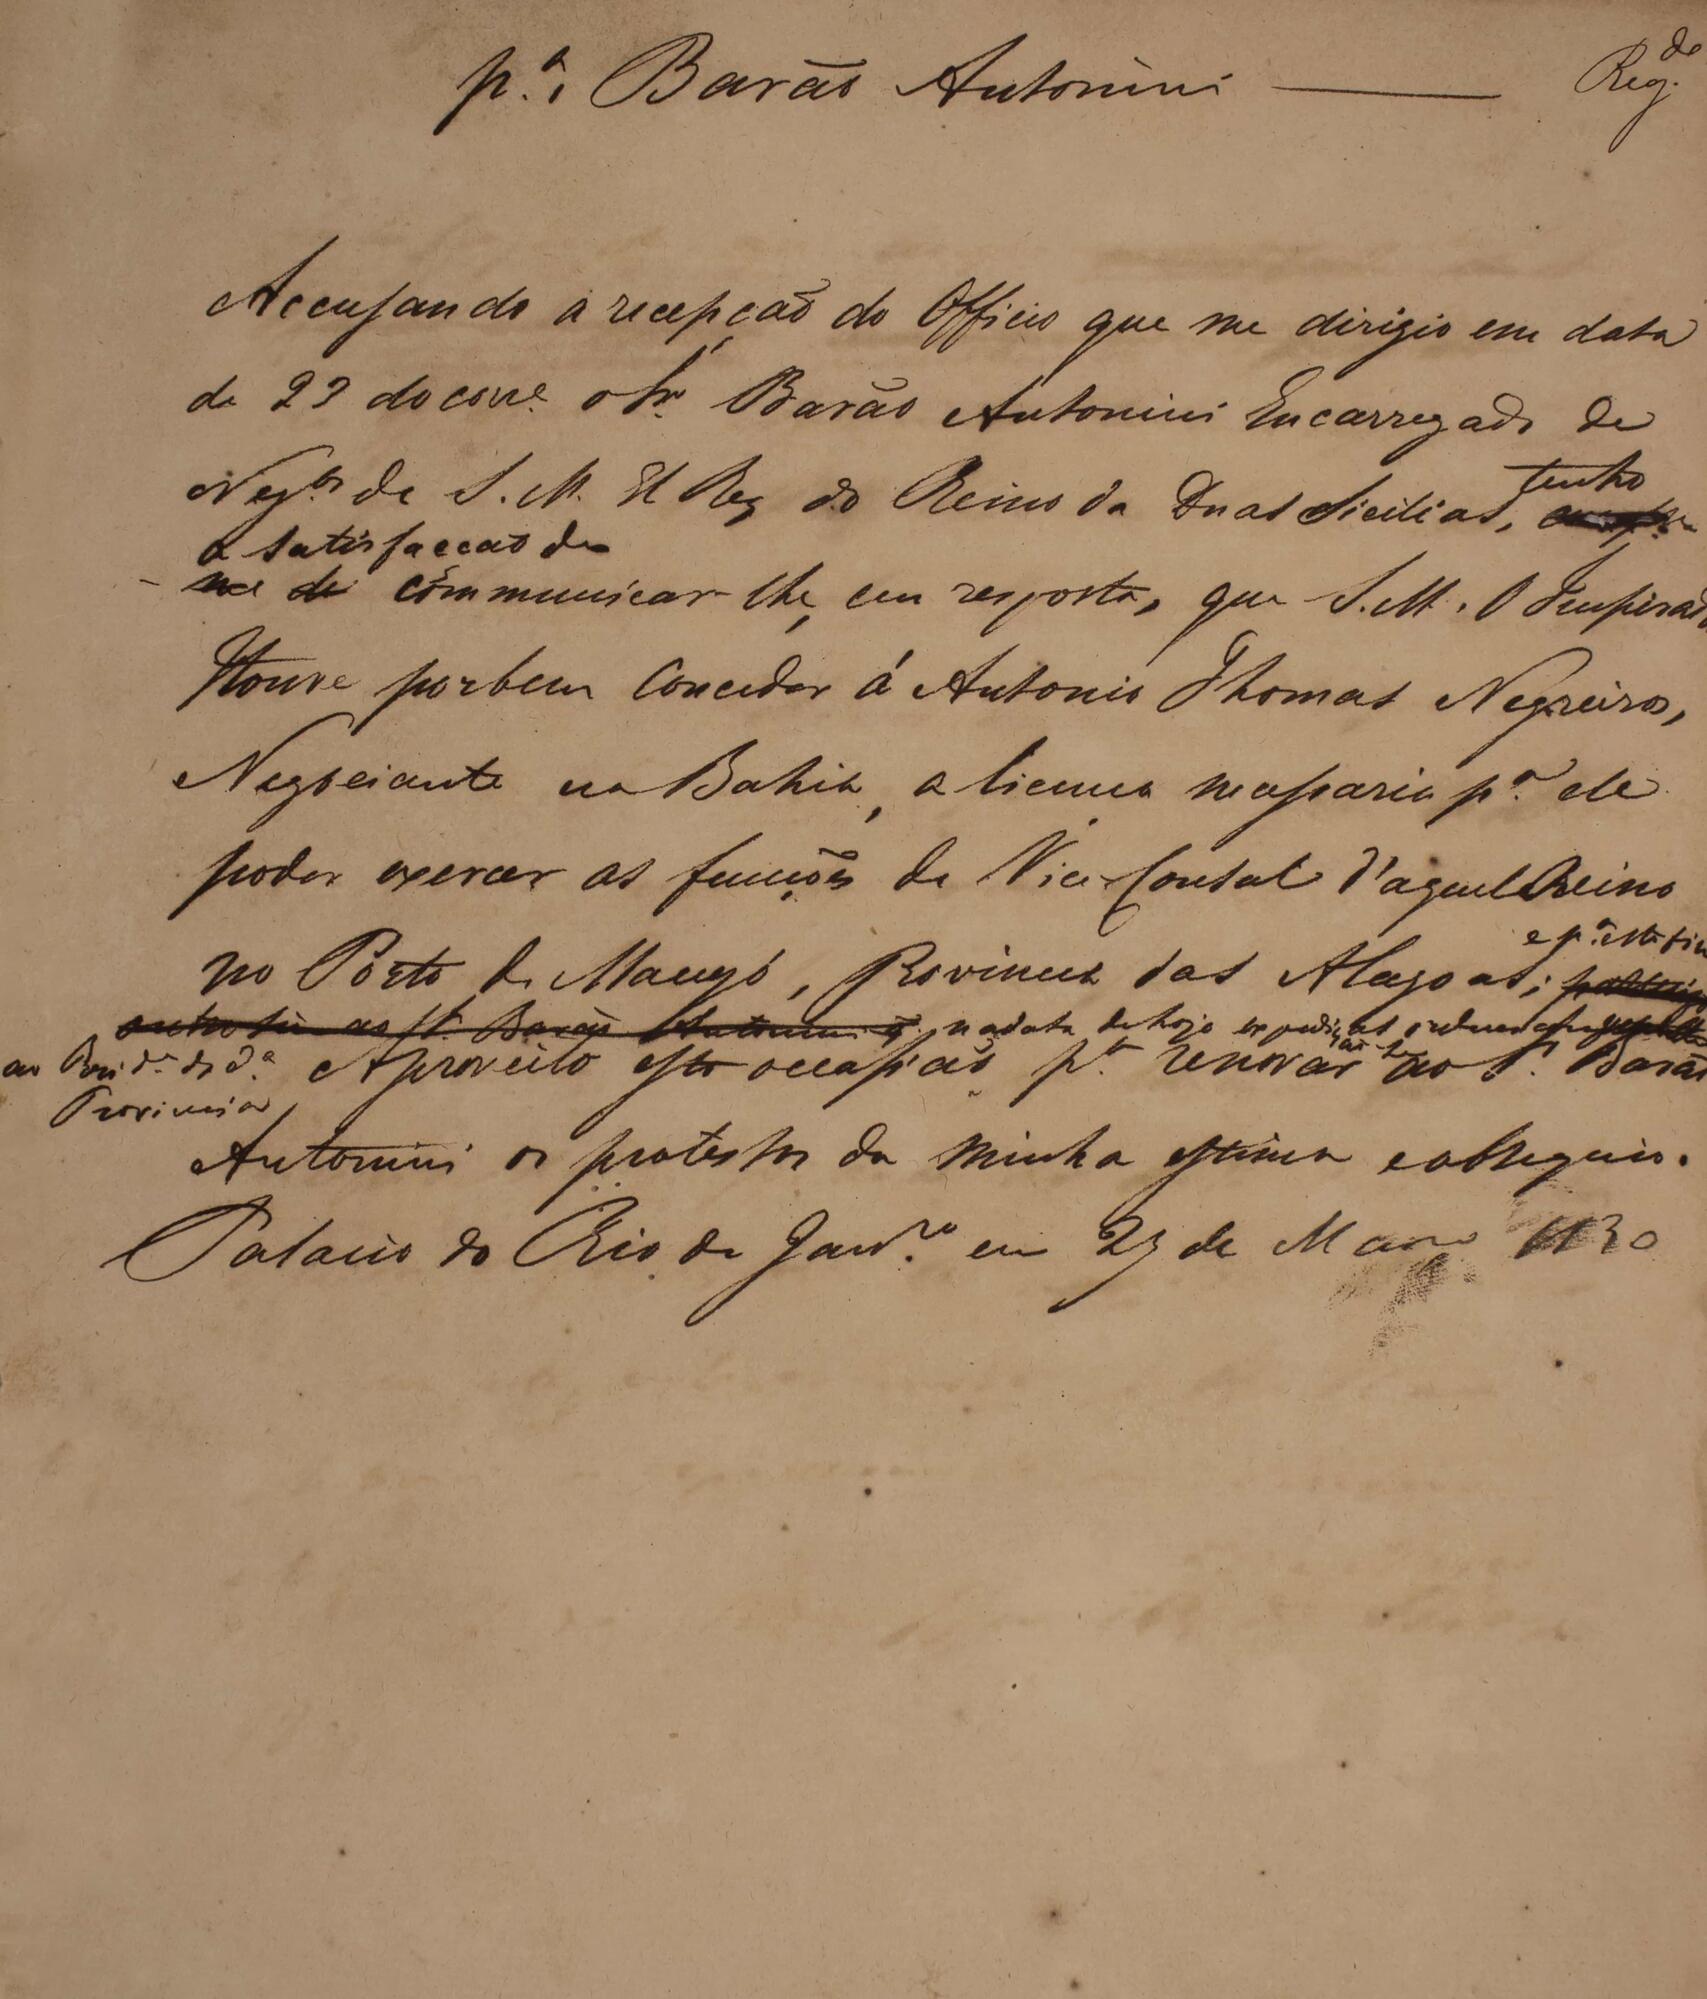 p.ª Barão Antonini — Reg.do
Accusando a recepção do Officio que me dirigio em data
de 23 do corr.e o Sr. Barão Antonini Encarregado de
Neg.os de S. M. El Rey do Reino da Duas Sicilias, tenho
a satisfacção de
me de communicar-lhe, em resposta, que S. M. O Imperador
Houve por bem Conceder á Antonio Thomas Negreiros,
Negociante na Bahia, a licença necessaria p.ª ele
poder exercer as funções de Vice-Consul d'aquel Reino
e p.ª este fim
no Porto de Maceyó, Provincia das Alagoas;
ao Sr. Barão Antonini q. na data de hoje expedição ordens
ao Presid.e da d.ª Aproveito esta occasião p.ª renovar ao S.r Barão
Provincia
Antonini os protestos da minha estima e obsequio.
Palacio do Rio de Janr.o em 27 de Março 1830